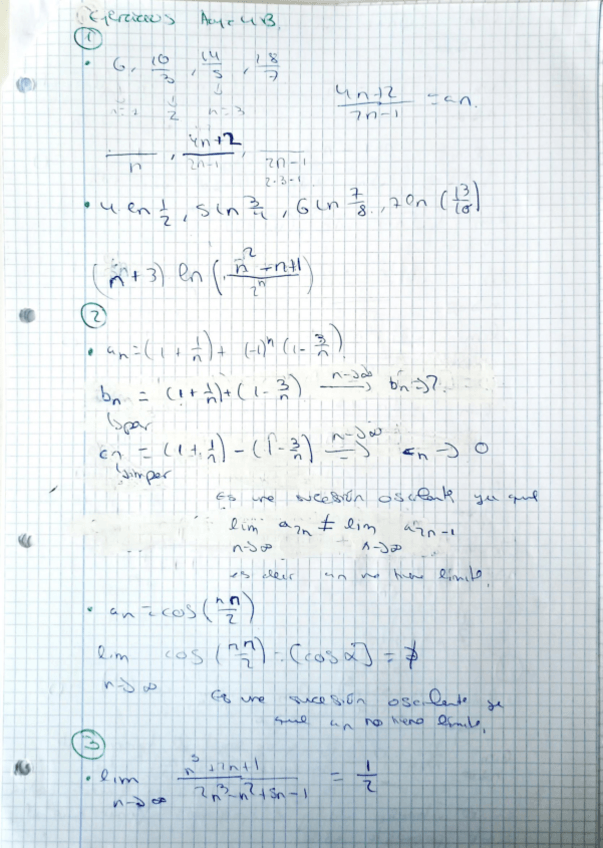 Ejercicios
①
• 6, 10/3, 14/5, 18/7
4n+2/2n-1 = an.
n=3
/n , 4n+2/2n-1, /2n-1
2·3-1
• 4 ln 1/2, 5 ln 3/4, 6 ln 7/8, 7 ln (13/16)
(n+3) ln (n²-n+1/2ⁿ)
②
• an = (1 + 1/n) + (-1)ⁿ (1 - 3/n)
bn = (1 + 1/n) + (1 - 3/n) n→∞ → bn → 2.
par
cn = (1 + 1/n) - (1 - 3/n) n→∞ → cn → 0
impar
Es una sucesión oscilante ya que
lim a2n ≠ lim a2n-1
n→∞ n→∞
es decir an no tiene límite.
• an = cos(nπ/2)
lim cos(nπ/2) = (cos α) = ∄
n→∞
Es una sucesión oscilante ya
que an no tiene límite.
③
• lim n³+2n+1/2n³-n²+3n-1 = 1/2
n→∞